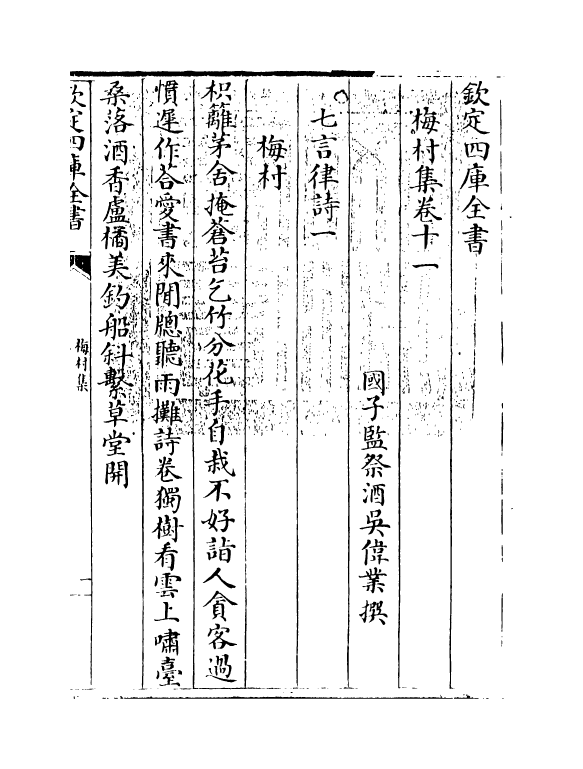 欽定四庫全書
梅村集卷十一
國子監祭酒吳偉業撰
七言律詩一
梅村
枳籬茅舍掩蒼苔乞竹分花手自栽不好詣人貪客過
慣遲作答愛書來閒牕聽雨攤詩卷獨樹看雲上嘯臺
桑落酒香盧橘美釣船斜繫草堂開
欽定四庫全書
梅村集
一